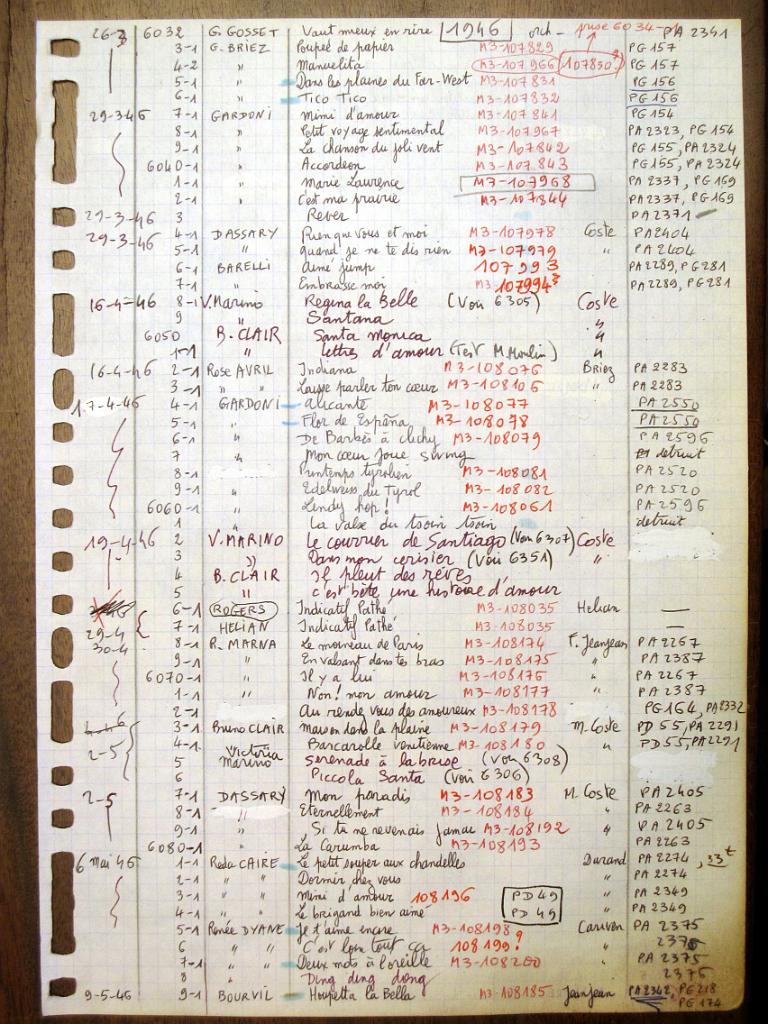 26-3 6032 G. GOSSET Vaut mieux en rire 1946 orch- prise 6034- PA 2341
3-1 G. BRIEZ Poupée de papier M3-107829 PG 157
4-2 " Manuelita M3-107966 107830? PG 157
5-1 " Dans les plaines du Far-West M3-107831 PG 156
6-1 " Tico Tico M3-107832 PG 156
29-3-46 7-1 GARDONI Mimi d'amour M3-107841 PG 154
8-1 " Petit voyage sentimental M3-107967 PA 2323, PG 154
9-1 " La chanson du joli vent M3-107842 PG 155, PA 2324
6040-1 " Accordeon M3-107843 PG 155, PA 2324
1-1 " Marie Laurence M7-107968 PA 2337, PG 169
2-1 " C'est ma prairie M3-107844 PA 2337, PG 169
29-3-46 3 Rever PA 2371
29-3-46 4-1 DASSARY Rien que vous et moi M3-107978 Coste PA 2404
5-1 " quand je ne te dis rien M3-107979 " PA 2404
6-1 BARELLI Aimé jump 107993 PA 2289, PG 281
7-1 " Embrasse moi M3 107994? PA 2289, PG 281
16-4-46 8-1 V. Marino Regina la Belle (Voir 6305) Coste
9 " Santana "
6050 B. CLAIR Santa Monica "
1-1 " lettres d'amour (Test M. Moulin) "
16-4-46 2-1 Rose AVRIL Indiana M3-108076 Briez PA 2283
3-1 " " Laisse parler ton cœur M3-108106 " PA 2283
17-4-46 4-1 GARDONI Alicante M3-108077 PA 2550
5-1 " Flor de España M3-108078 PA 2550
6-1 " De Barbès à Clichy M3-108079 PA 2596
7 " Mon cœur joue swing detruit
8-1 Printemps tyrolien M3-108081 PA 2520
9-1 " Edelweiss du Tyrol M3-108082 PA 2520
6060-1 " Lindy hop! M3-108061 PA 2596
1 " La valse du tsoin tsoin detruit
19-4-46 2 V. MARINO Le courrier de Santiago (Voir 6307) Coste
3 " Dans mon cerisier (Voir 6351) "
4 B. CLAIR Il pleut des rêves
5 " c'est bête une histoire d'amour
6-1 ROGERS Indicatif Pathé M3-108035 Helian —
29-4 7-1 HELIAN Indicatif Pathé M3-108035 —
30-4 8-1 R. MARNA Le moineau de Paris M3-108174 F. Jeanjean PA 2267
9-1 " En valsant dans tes bras M3-108175 " PA 2387
6070-1 " Il y a lui M3-108176 " PA 2267
1-1 " Non! mon amour M3-108177 " PA 2387
2-1 Au rendez vous des amoureux M3-108178 PG 164, PA 2332
3-1 Bruno CLAIR maison dans la plaine M3-108179 M. Coste PD 55, PA 2291
2-5 4-1 " Barcarolle venitienne M3-108180 " PD 55, PA 2291
5 Victoria Marino serenade à la brise (Voir 6308)
6 Piccola Santa (Voir 6306)
2-5 7-1 DASSARY Mon paradis M3-108183 M. Coste PA 2405
8-1 " Eternellement M3-108184 " PA 2263
9-1 Si tu ne revenais jamais M3-108192 " PA 2405
6080-1 " La Carumba M3-108193 PA 2263
6 mai 46 1-1 Reda CAIRE Le petit souper aux chandelles Durand PA 2274, 33t
2-1 " " Dormir chez vous " PA 2274
3-1 " " Mimi d'amour 108196 PD 49 " PA 2349
4-1 " " Le brigand bien aimé PD 49 " PA 2349
5-1 Renée DYANE Je t'aime encore M3-108198 Cariven PA 2375
6 " " C'est loin tout ça 108199? " 2375
7-1 " " Deux mots à l'oreille M3-108200 " PA 2375
8 " Ding ding dong 2375
9-5-46 9-1 BOURVIL Houpetta la Bella M3-108185 Jeanjean PA 2342, PG 218
PG 174